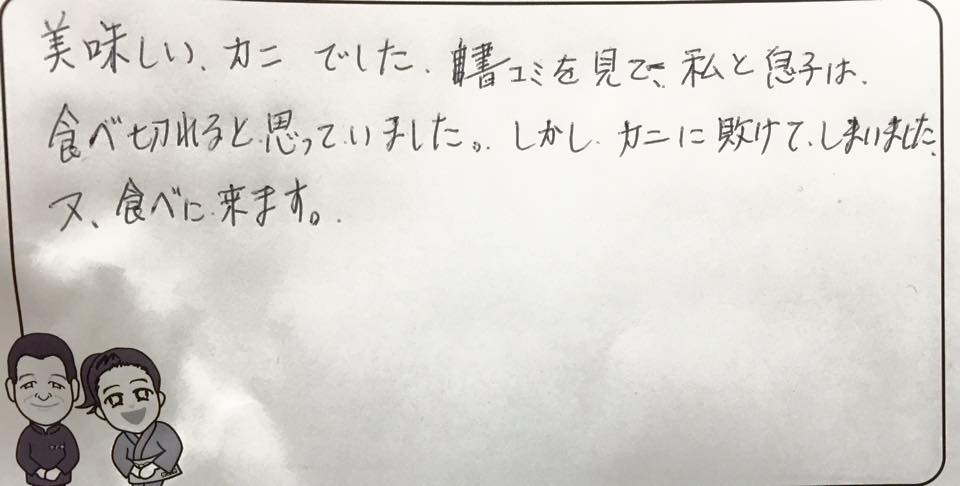 美味しい、カニ でした、書コミを見て、私と息子は、
食べ切れると思っていました。しかし、カニに敗けて、しまいました、
又、食べに来ます。